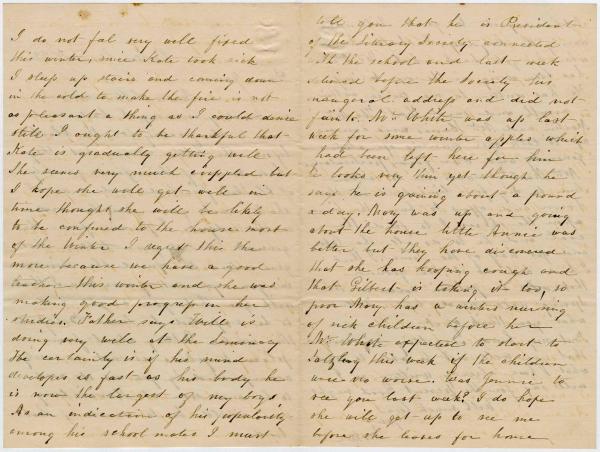 I do not fel very well fixed
this winter, since Kate took sick
I sleep up stairs and coming down
in the cold to make the fire is not
as pleasant a thing as I could desire
still I ought to be thankful that
Kate is gradually getting well
She seems very much crippled but
I hope she will get well in
time though she will be likely
to be confined to the house most
of the winter I regret this the
more because we have a good
teacher this winter and she was
making good progress in her
studies. Father says Wille is
doing very well at the
He certainly is if his mind
developes as fast as his body he
is now the largest of my boys,
As an indication of his popularity
among his school mates I must
tell you that he is President
of the Literary Society connected
the school and last week
before the Society his
naugeral address and did not
faint. Mr White was up last
week for some winter apples which
had been left here for him
He looks very thin yet though he
says he is gaining about a pound
a day. Mary was up and going
about the house little Annie was
better but they have discovered
that she has hooping cough and
that Gilbert is taking it too, so
poor Mary has a winters nursing
of sick children before her
Mr White expected to start to
this week if the children
were no worse. Was Jennie to
see you last week? I do hope
she will get up to see me
before she leaves for home